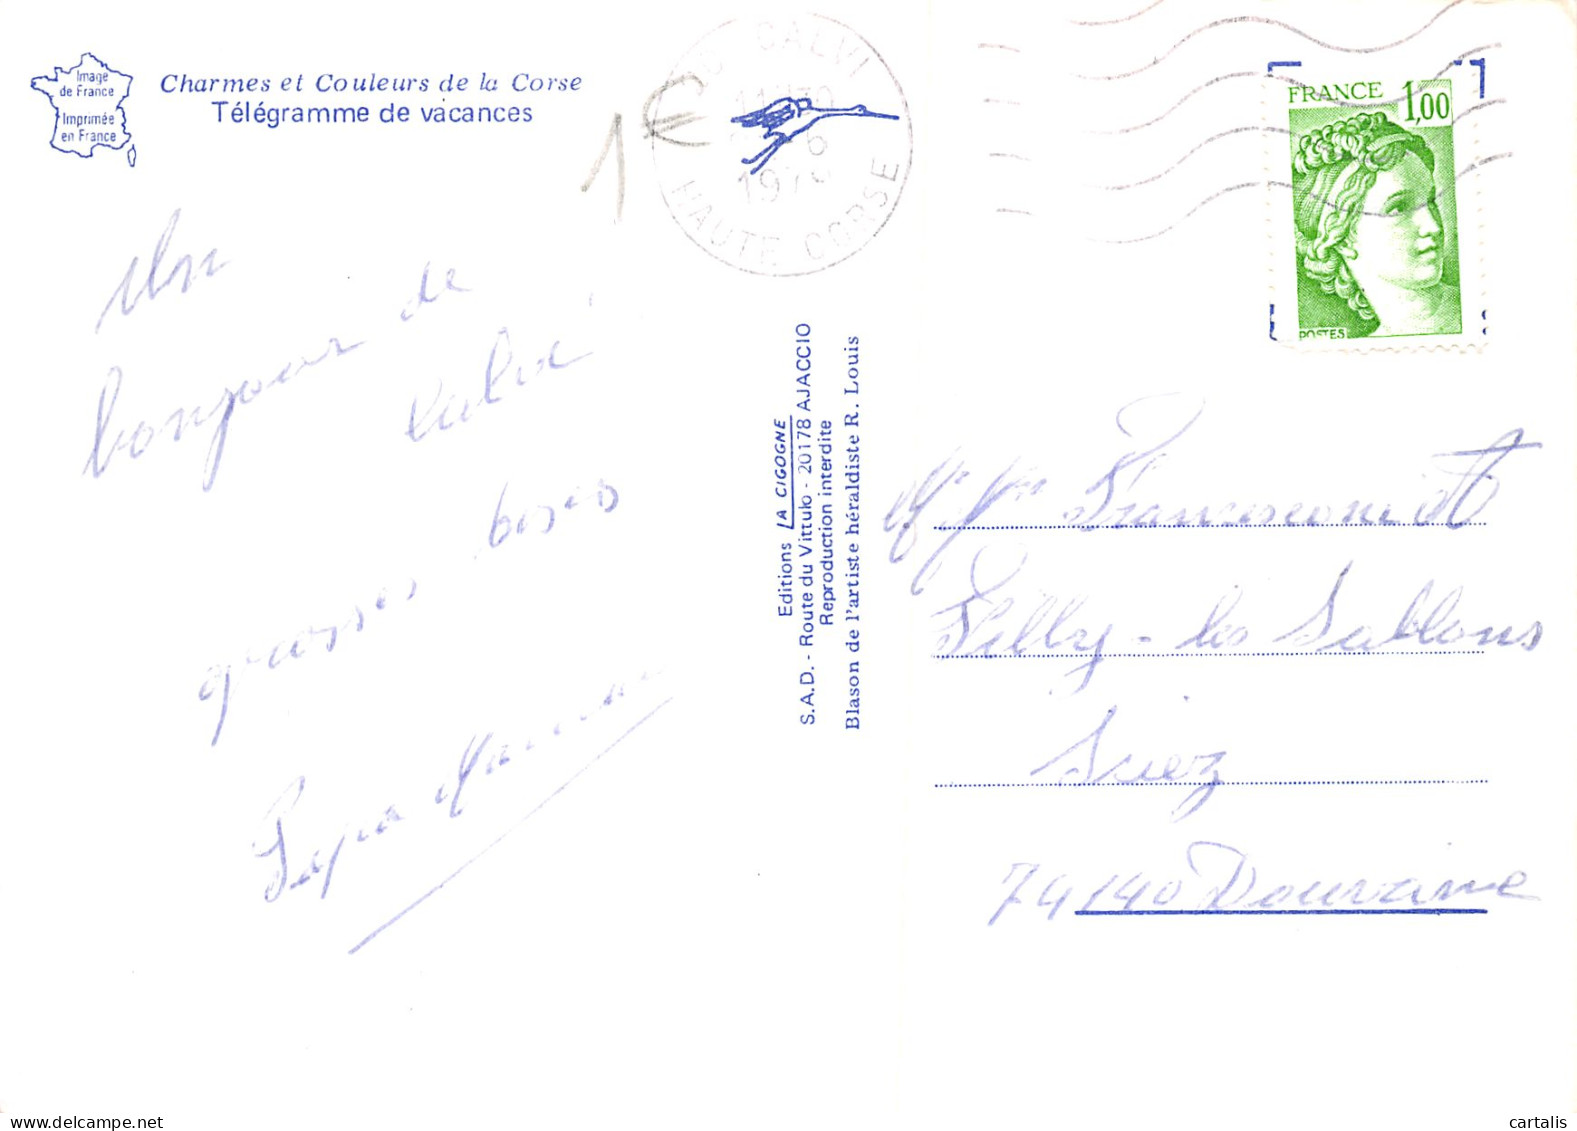 Image
de France
Imprimée
en France
Charmes et Couleurs de la Corse
Télégramme de vacances
1€
CALVI
1978
HAUTE CORSE
FRANCE 1,00
POSTES
Un
bonjour de
de
Calvi
grosses bises
Papa Maman
Editions LA CIGOGNE
S.A.D. - Route du Vittulo - 20178 AJACCIO
Reproduction interdite
Blason de l'artiste héraldiste R. Louis
Filly - les Sablons
Sciez
74140 Douvaine
cartalis